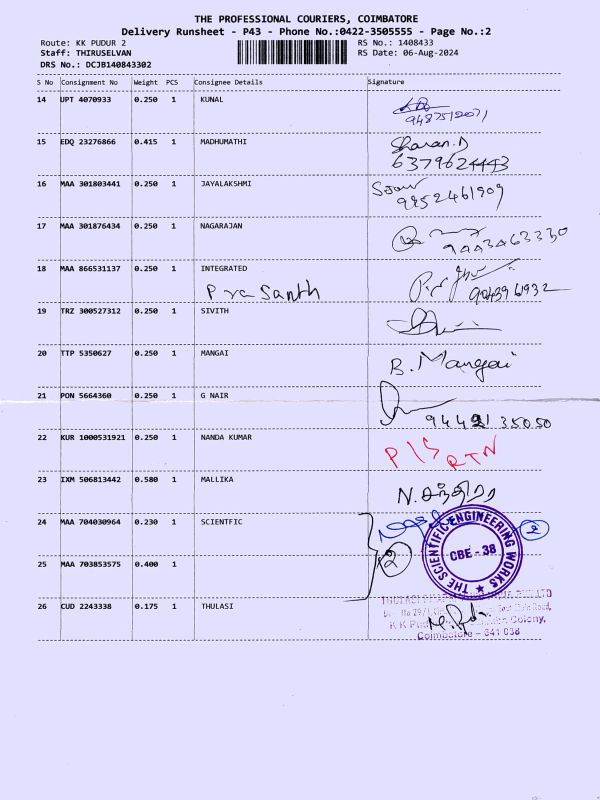 THE PROFESSIONAL COURIERS, COIMBATORE
Delivery Runsheet - P43 - Phone No.:0422-3505555 - Page No.:2
Route: KK PUDUR 2
RS No.: 1408433
Staff: THIRUSELVAN
RS Date: 06-Aug-2024
DRS No.: DCJB140843302
S No Consignment No Weight PCS Consignee Details Signature
14 UPT 4070933 0.250 1 KUNAL
15 EDQ 23276866 0.415 1 MADHUMATHI Sharan.D
6379624443
16 MAA 301803441 0.250 1 JAYALAKSHMI
9952461909
17 MAA 301876434 0.250 1 NAGARAJAN
9443463330
18 MAA 866531137 0.250 1 INTEGRATED
Prasanth
19 TRZ 300527312 0.250 1 SIVITH
20 TTP 5350627 0.250 1 MANGAI B. Mangai
21 PON 5664360 0.250 1 G NAIR
9442135050
22 KUR 1000531921 0.250 1 NANDA KUMAR P/S RTN
23 IXM 506813442 0.580 1 MALLIKA N. சந்திரா
24 MAA 704030964 0.230 1 SCIENTFIC 2
THE SCIENTIFIC ENGINEERING WORKS
CBE - 38
25 MAA 703853575 0.400 1 2
26 CUD 2243338 0.175 1 THULASI
Colony,
Coimbatore - 641 038